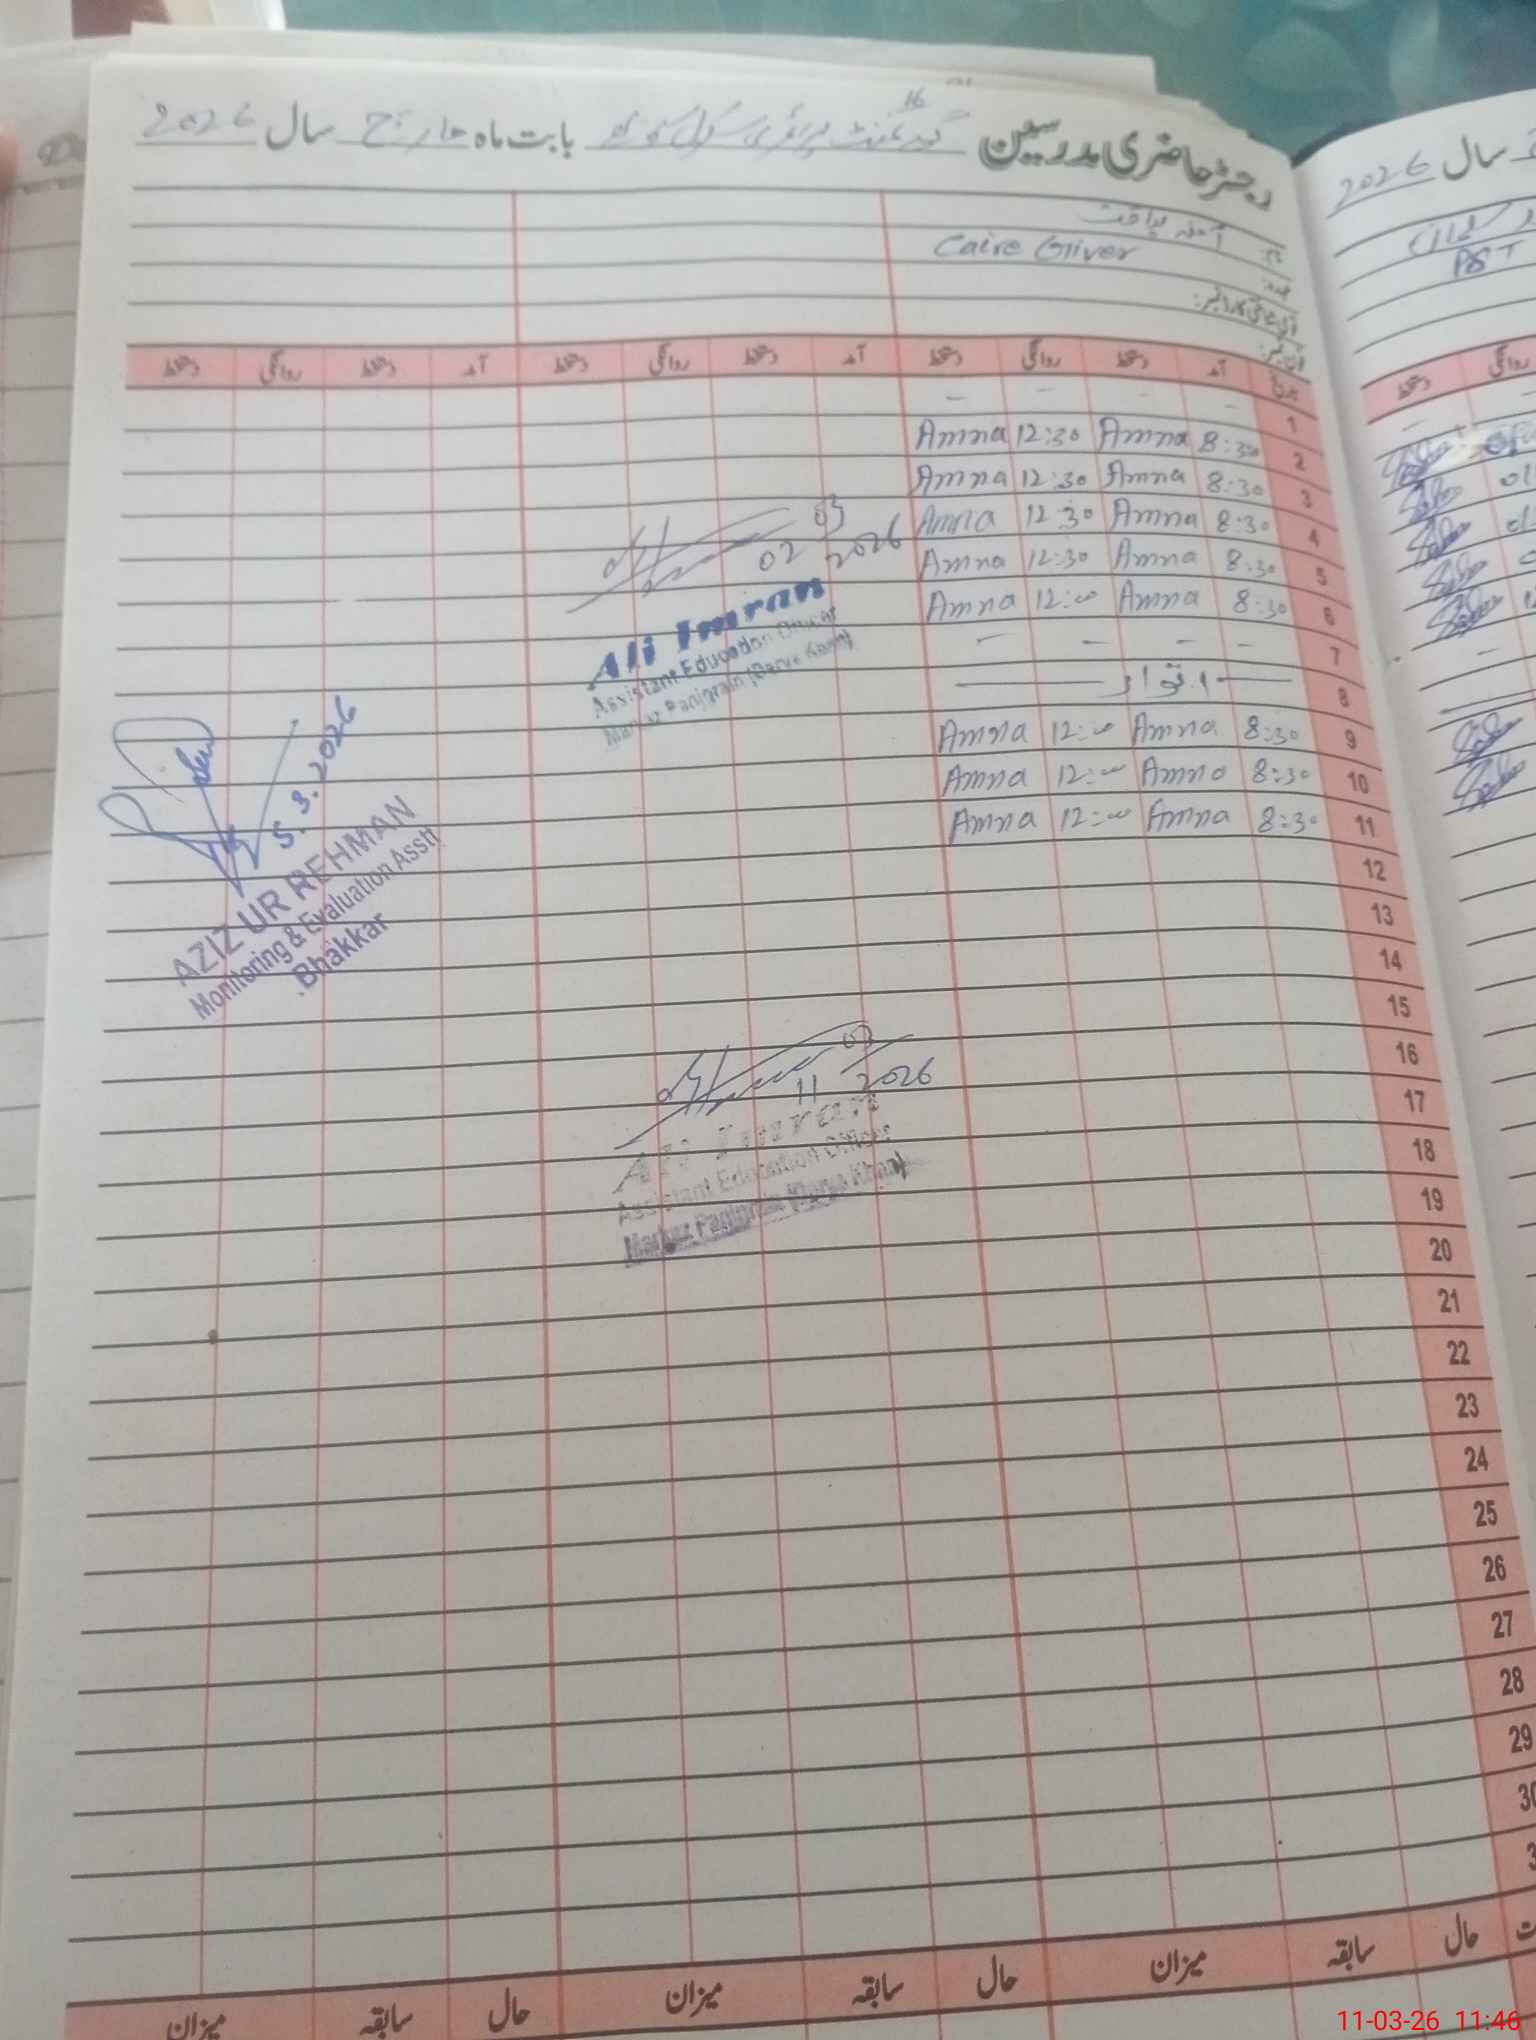 رجسٹر حاضری مدرسین گورنمنٹ پرائمری سکول بابت ماہ مارچ سال 2026
16
نام: آمنہ
Caire Gliver
عہدہ:
تاریخ آمد دستخط روانگی دستخط آمد دستخط روانگی دستخط آمد دستخط روانگی دستخط
1 - - - -
2 8:30 Amna 12:30 Amna
3 8:30 Amna 12:30 Amna
4 8:30 Amna 12:30 Amna
5 8:30 Amna 12:30 Amna
6 8:30 Amna 12:00 Amna
7 - - - -
8 اتوار
9 8:30 Amna 12:00 Amna
10 8:30 Amna 12:00 Amna
11 8:30 Amna 12:00 Amna
12
13
14
15
16
17
18
19
20
21
22
23
24
25
26
27
28
29
30
حال سابقہ میزان حال سابقہ میزان حال سابقہ میزان
02 03 2026
Ali Imran
Assistant Education Officer
Markaz Panjgrain (Darya Khan)
5.3.2026
AZIZ UR REHMAN
Monitoring & Evaluation Asstt
Bhakkar
11 03 2026
Ali Imran
Assistant Education Officer
Markaz Panjgrain (Darya Khan)
سال 2026
PST
روانگی دستخط
11-03-26 11:46